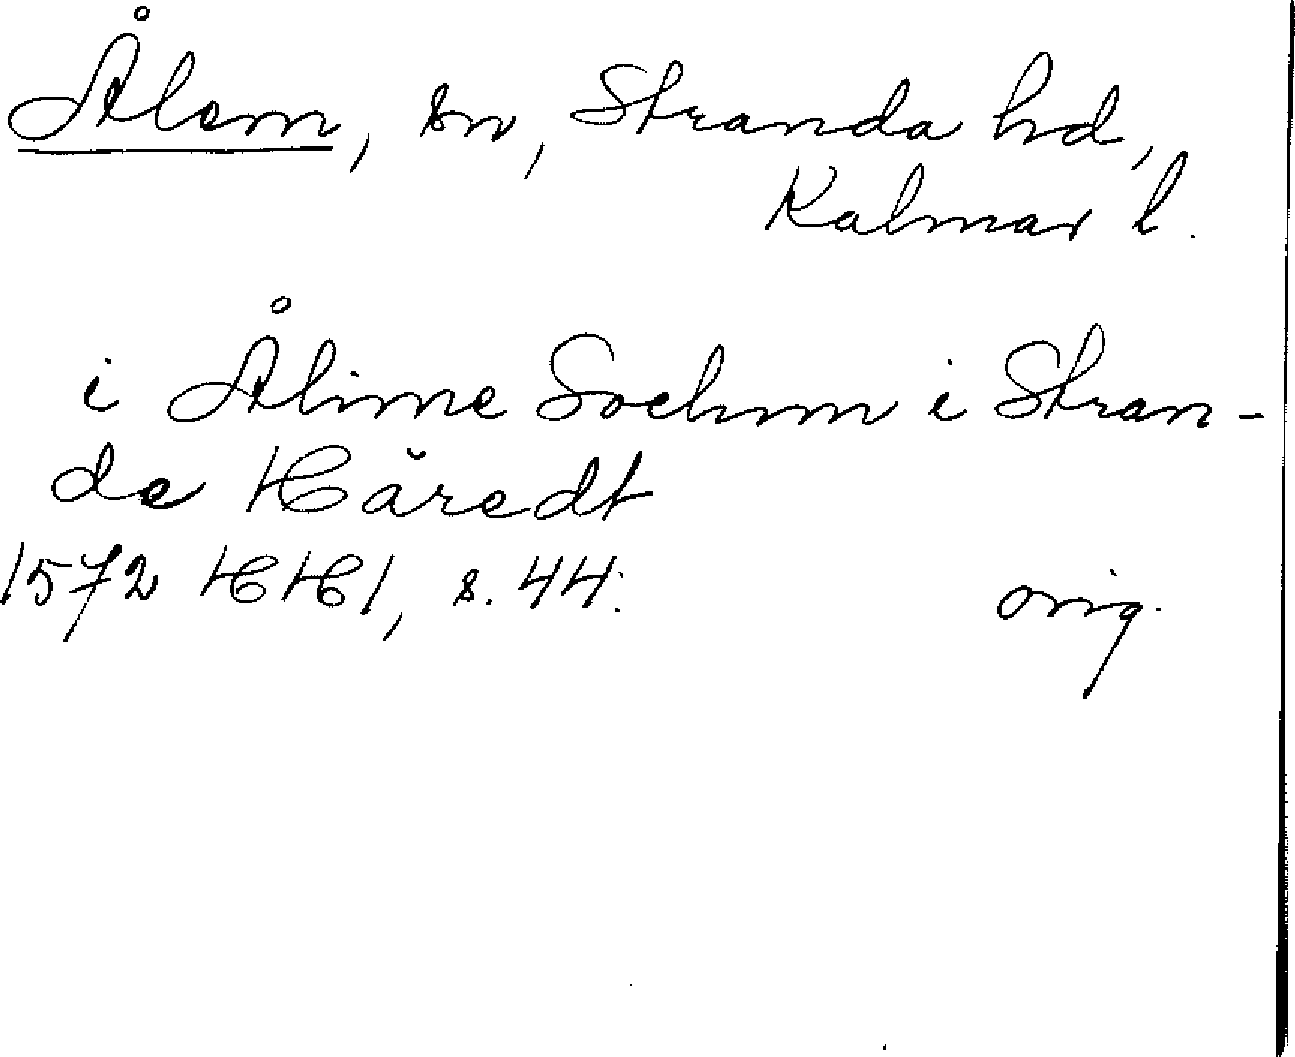 Ålem, sn, Stranda hd,
Kalmar l.
i Ålime Sochnn i Stran-
de Häredt
1572 HH1, s. 44.
orig.